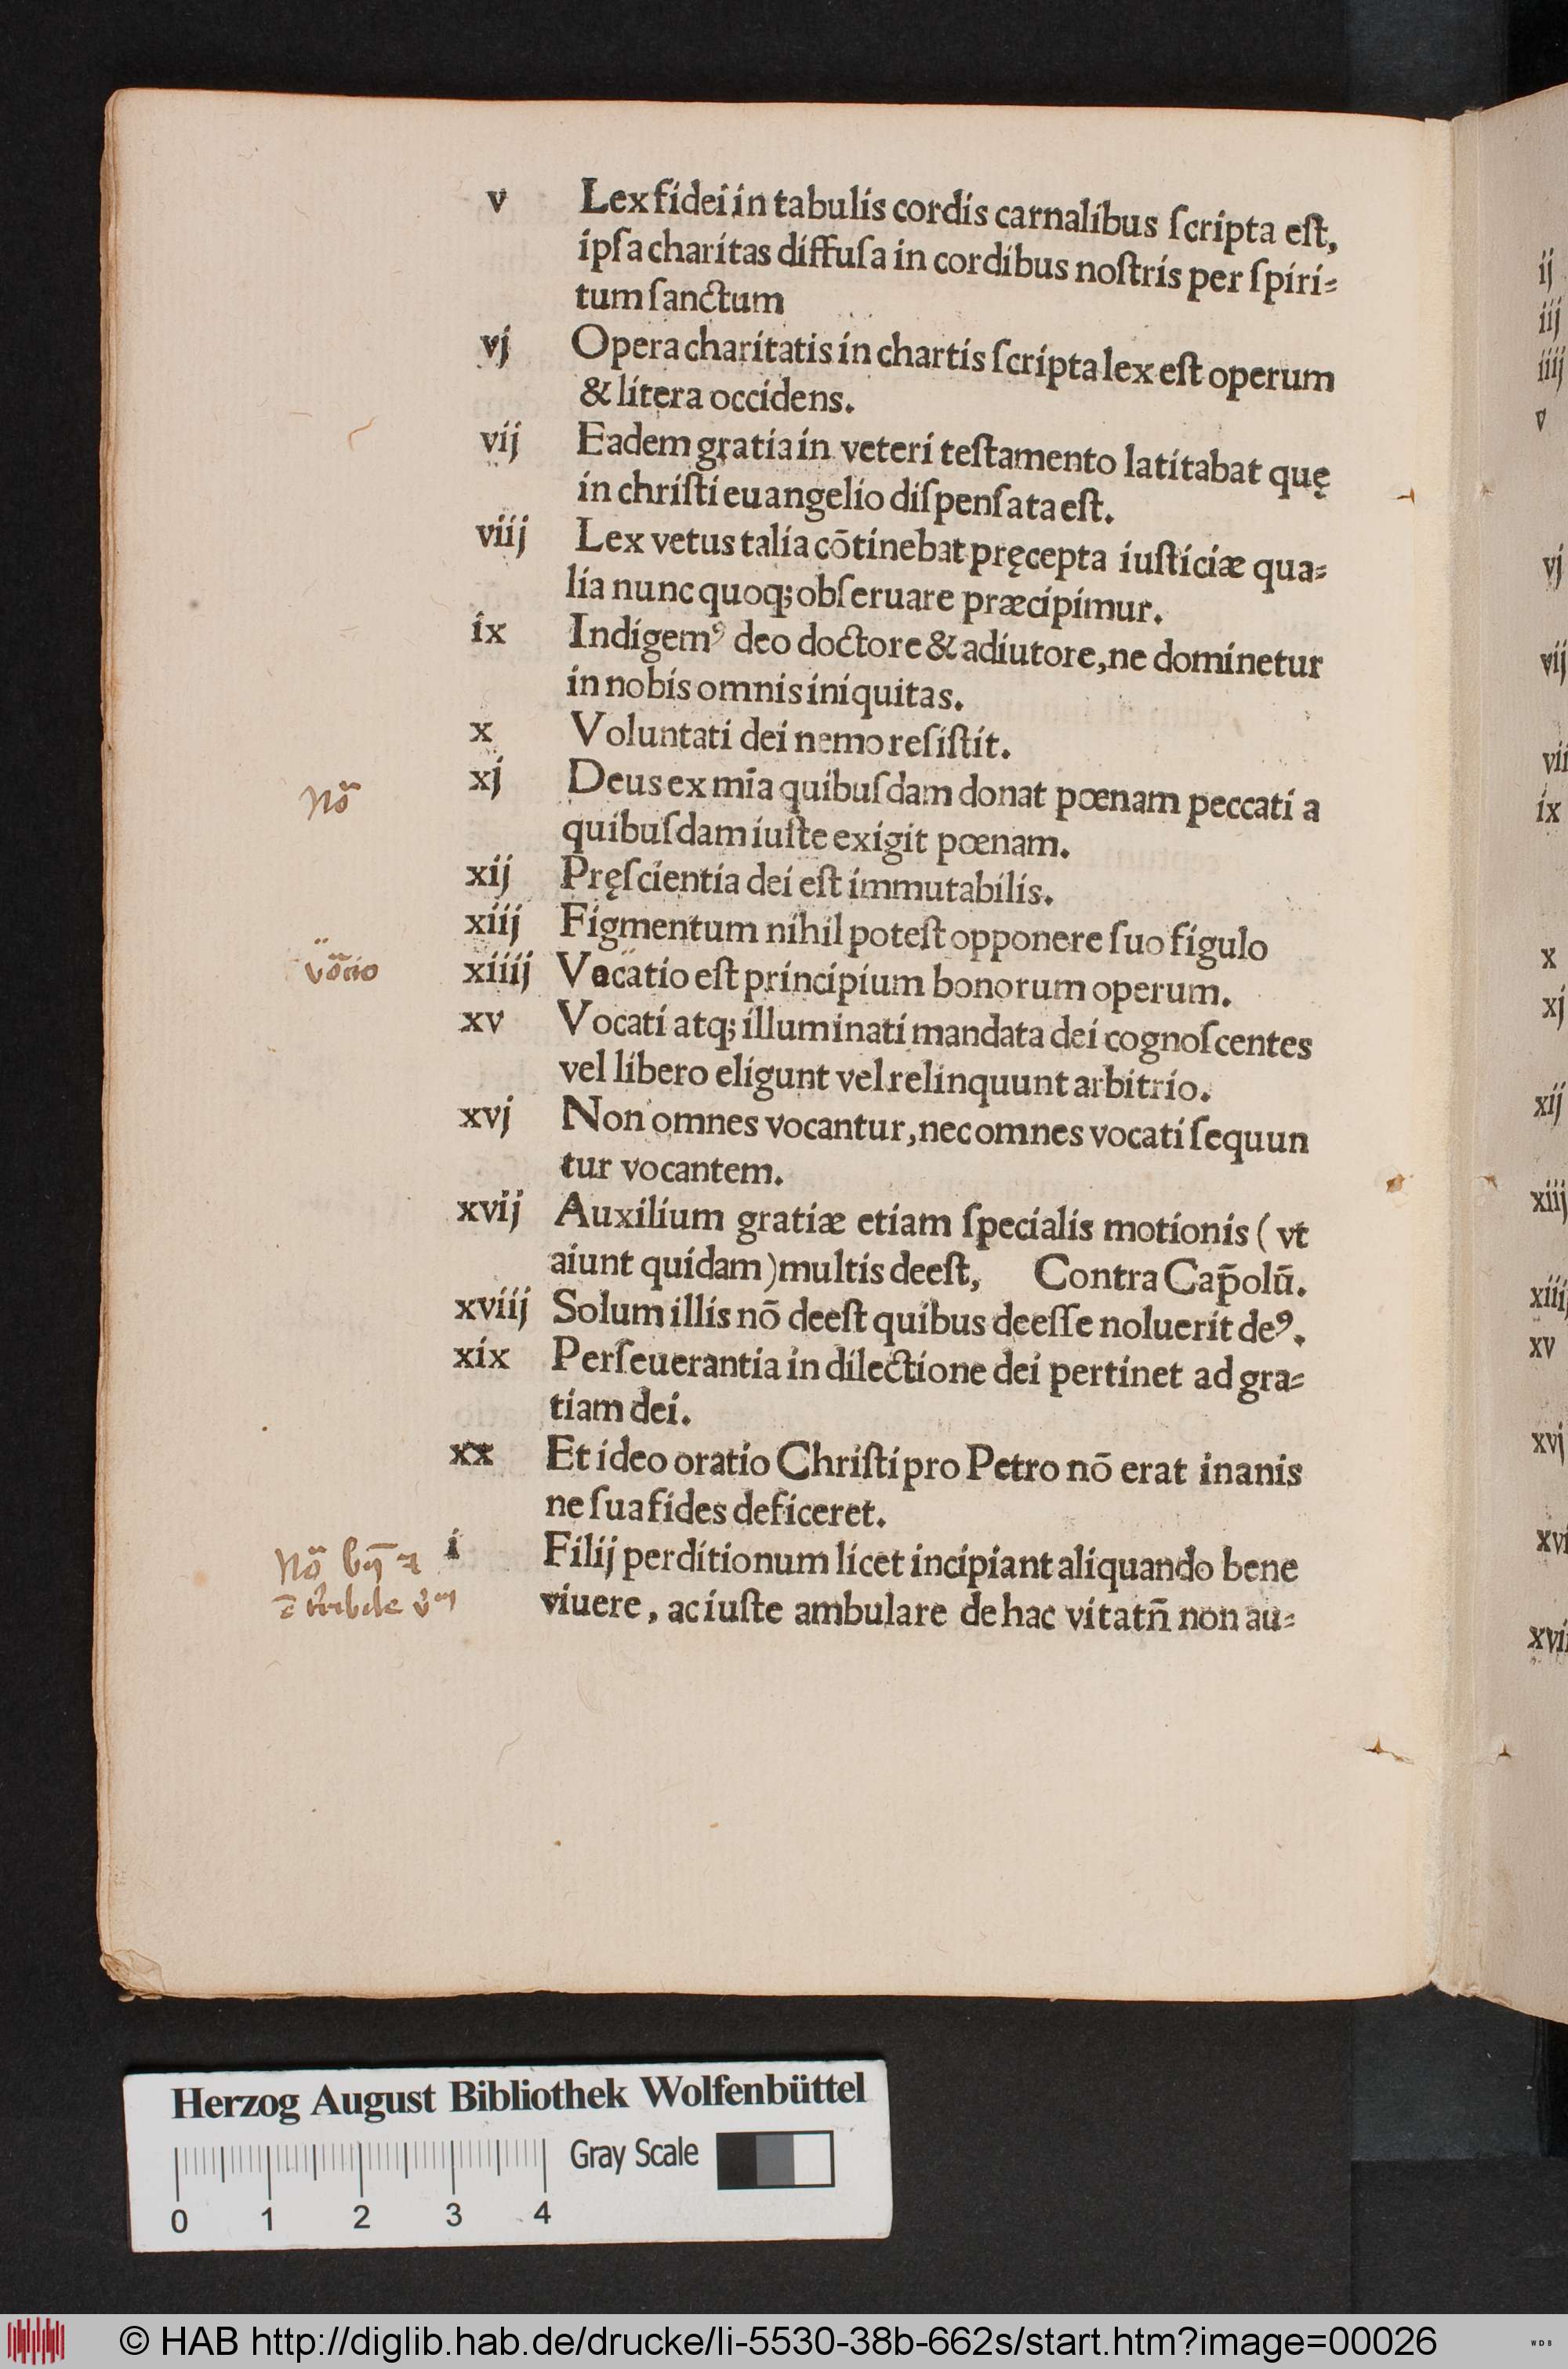 v Lex fidei in tabulis cordis carnalibus ſcripta eſt,
ipſa charitas diffuſa in cordibus noſtris per ſpiri⸗
tum ſanctum
vj Opera charitatis in chartis ſcripta lex eſt operum
& litera occidens.
vij Eadem gratia in veteri teſtamento latitabat quę
in chriſti euangelio diſpenſata eſt.
viij Lex vetus talia cōtinebat pręcepta iuſticiæ qua⸗
lia nunc quoq; obſeruare præcipimur.
ix Indigemꝰ deo doctore & adiutore, ne dominetur
in nobis omnis iniquitas.
x Voluntati dei nemo reſiſtit.
xj Deus ex mīa quibuſdam donat pœnam peccati a
quibuſdam iuſte exigit pœnam.
xij Pręſcientia dei eſt immutabilis.
xiij Figmentum nihil poteſt opponere ſuo figulo
xiiij Vocatio eſt principium bonorum operum.
xv Vocati atq; illuminati mandata dei cognoſcentes
vel libero eligunt vel relinquunt arbitrio.
xvj Non omnes vocantur, nec omnes vocati ſequun
tur vocantem.
xvij Auxilium gratiæ etiam ſpecialis motionis ( vt
aiunt quidam ) multis deeſt, Contra Cap̄olū.
xviij Solum illis nō deeſt quibus deeſſe noluerit deꝰ.
xix Perſeuerantia in dilectione dei pertinet ad gra⸗
tiam dei.
xx Et ideo oratio Chriſti pro Petro nō erat inanis
ne ſua fides deficeret.
i Filij perditionum licet incipiant aliquando bene
viuere, ac iuſte ambulare de hac vita tn̄ non au⸗
Nō
ij
iij
iiij
v
vj
vij
ix
x
xj
xij
xiij
xv
xvj
Herzog August Bibliothek Wolfenbüttel
Gray Scale
0 1 2 3 4
© HAB http://diglib.hab.de/drucke/li-5530-38b-662s/start.htm?image=00026